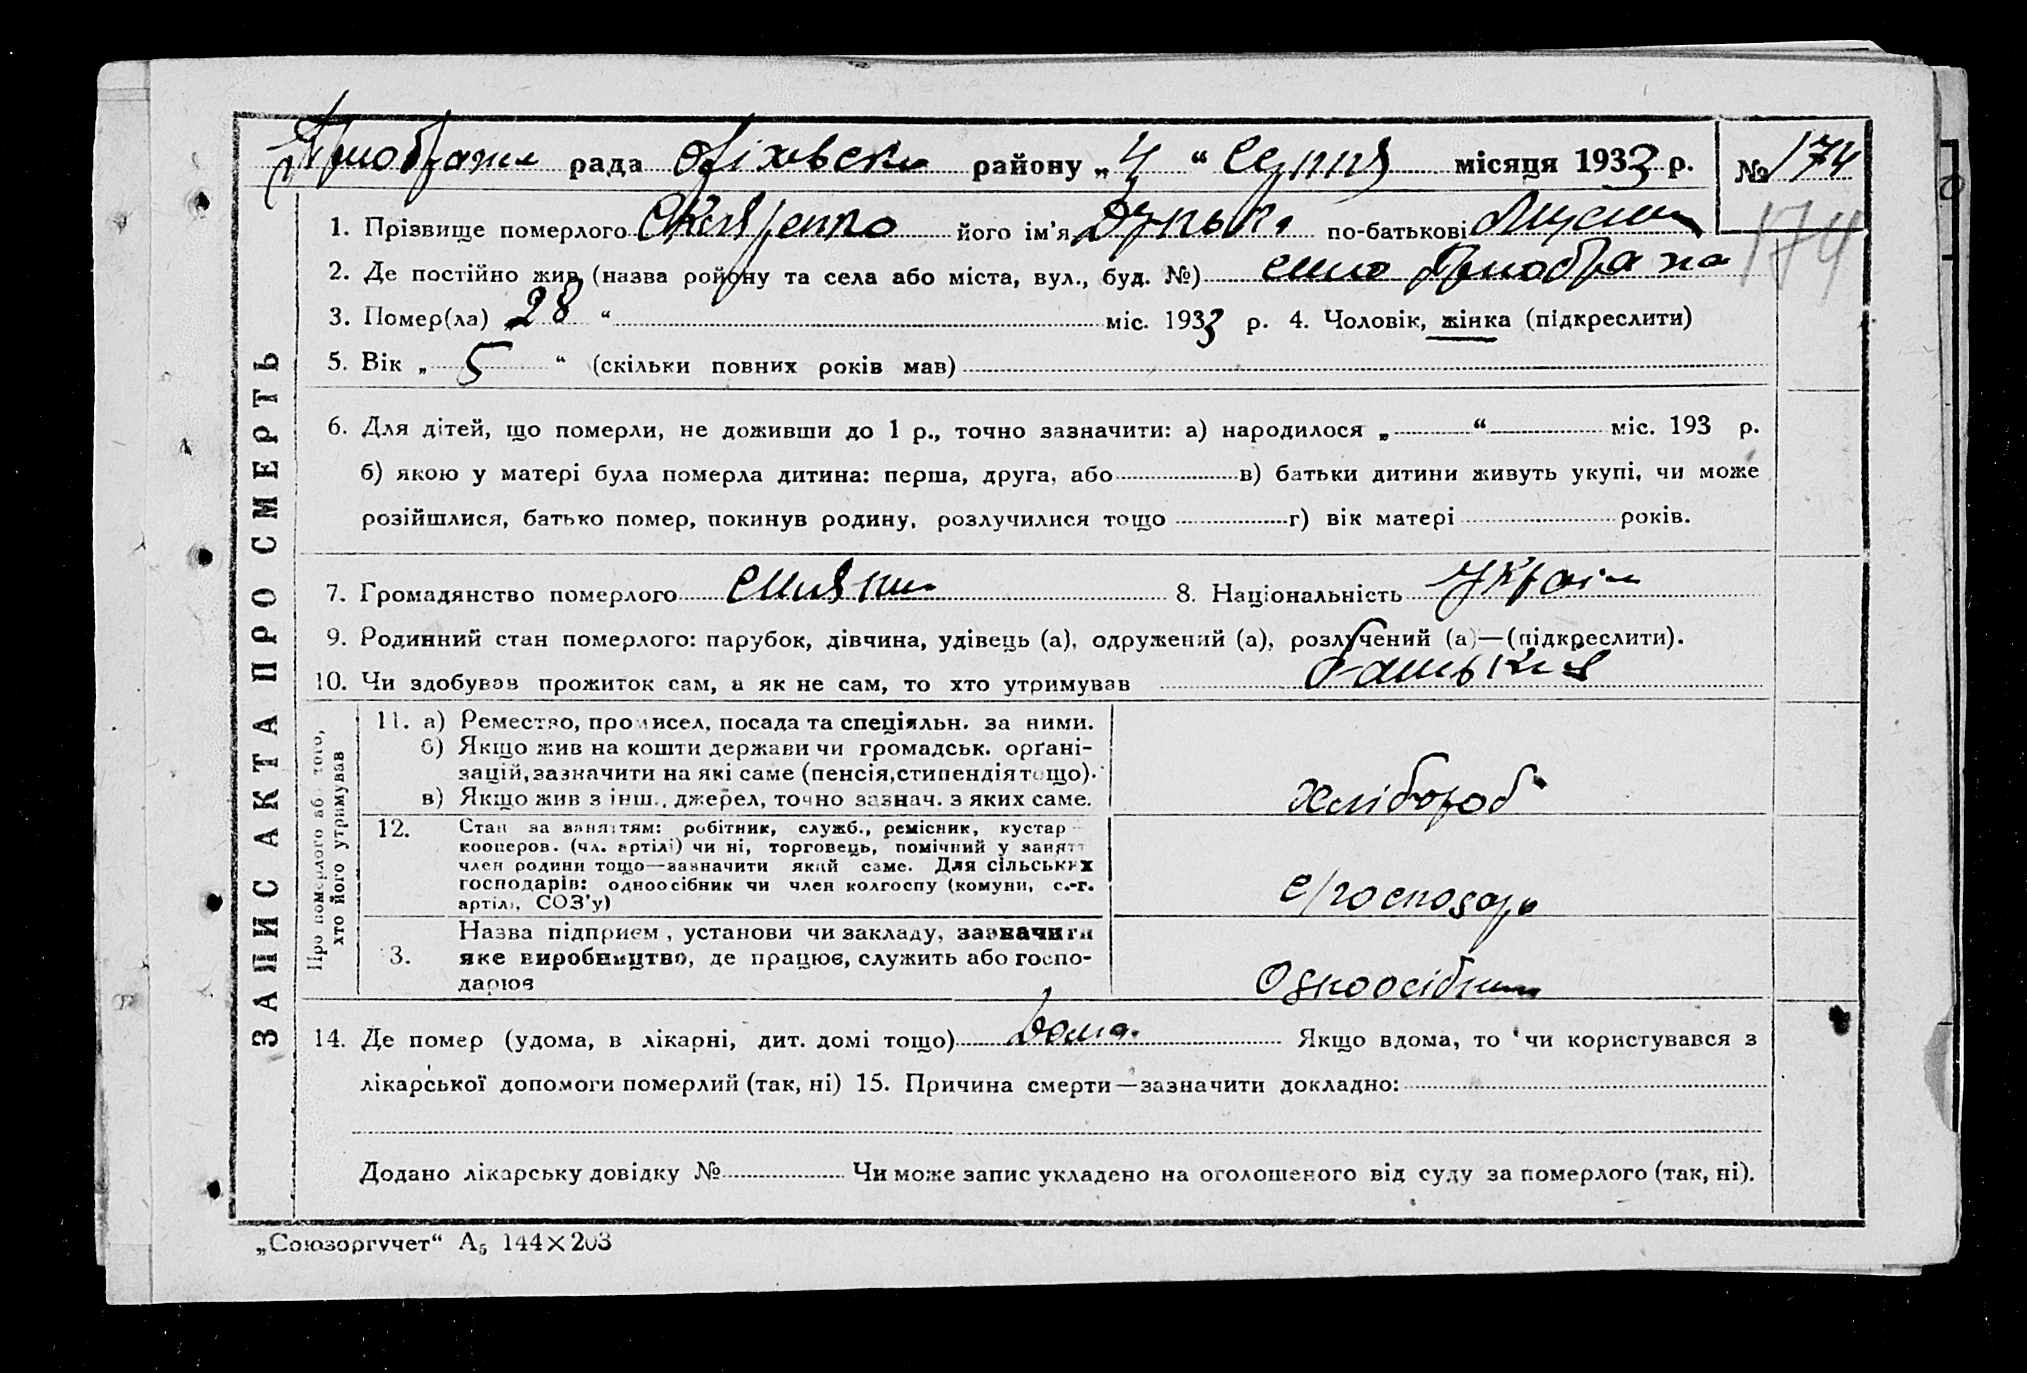 рада районУ „4" Серпня місяця 1933 р. № 174
174
1. Прізвище померлого його ім'я по-батькові
2. Де постійно жив (назва ройону та села або міста, вул., буд. №) село
3. Помер(ла) „28" міс. 1933 р. 4. Чоловік, жінка (підкреслити)
5. Вік „5" (скільки повних років мав)
6. Для дітей, що померли, не доживши до 1 р., точно зазначити: а) народилося „ " міс. 193 р.
б) якою у матері була померла дитина: перша, друга, або в) батьки дитини живуть укупі, чи може
розійшлися, батько помер, покинув родину, розлучилися тощо г) вік матері років.
7. Громадянство померлого селянин 8. Національність Україн
9. Родинний стан померлого: парубок, дівчина, удівець (а), одружений (а), розлучений (а)—(підкреслити).
10. Чи здобував прожиток сам, а як не сам, то хто утримував
ЗАПИС АКТА ПРО СМЕРТЬ
Про померлого або того,
хто його утримував
11. а) Ремество, промисел, посада та спеціяльн. за ними.
б) Якщо жив на кошти держави чи громадськ. орґані-
зацій, зазначити на які саме (пенсія, стипендія тощо).
в) Якщо жив з інш. джерел, точно зазнач. з яких саме.
хлібороб
12. Стан за заняттям: робітник, служб., ремісник, кустар
кооперов. (чл. артілі) чи ні, торговець, помічний у занятт
член родини тощо—зазначити який саме. Для сільських
господарів: одноосібник чи член колгоспу (комуни, с.-г.
артілі, СОЗ'у)
с/господар
13. Назва підприєм, установи чи закладу, зазначити
яке виробництво, де працює, служить або госпо-
дарює
Одноосібник
14. Де помер (удома, в лікарні, дит. домі тощо) дома Якщо вдома, то чи користувався з
лікарської допомоги померлий (так, ні) 15. Причина смерти—зазначити докладно:
Додано лікарську довідку № Чи може запис укладено на оголошеного від суду за померлого (так, ні).
„Союзоргучет" А5 144×203